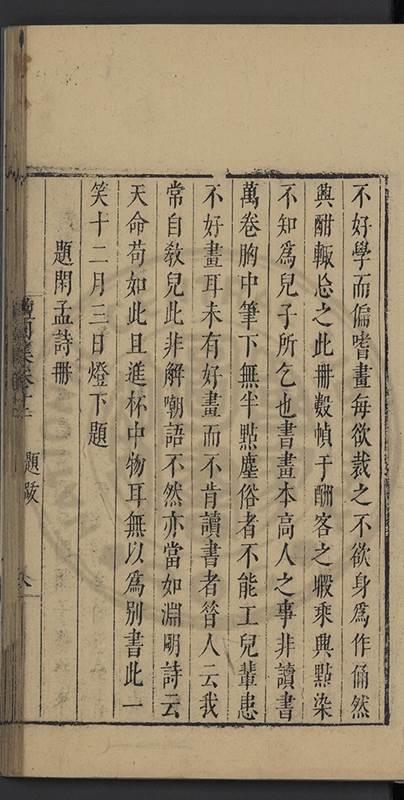 不好學而偏嗜畫每欲裁之不欲身爲作俑然
興酣輙忩之此冊數幀于酬客之暇乘興點染
不知爲兒子所乞也書畫本高人之事非讀書
萬卷胸中筆下無半點塵俗者不能工兒輩患
不好畫耳未有好畫而不肯讀書者昝人云我
常自敎兒此非解嘲語不然亦當如淵明詩云
天命苟如此且進杯中物耳無以爲別書此一
笑十二月三日燈下題
題閑孟詩冊
檀園集卷十二 題跋 八